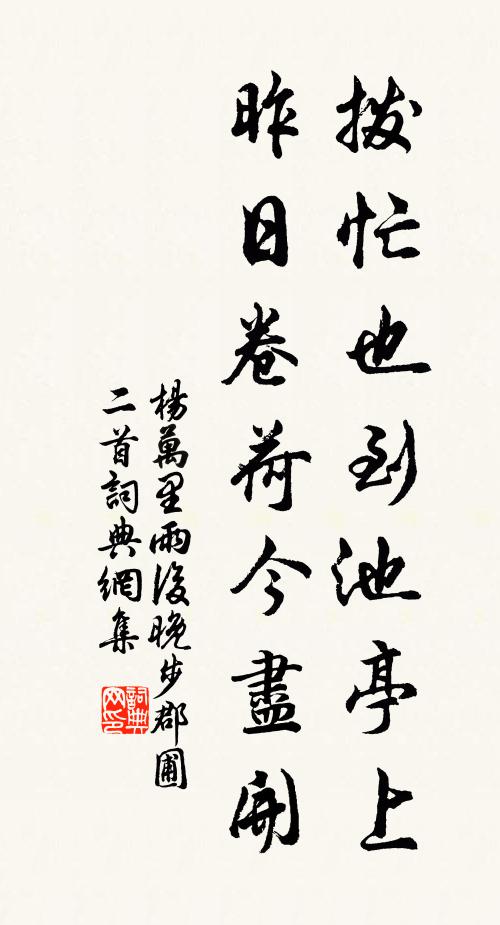 撥忙也到池亭上
昨日卷荷今盡開
楊萬里雨後晚步郡圃
二首詞典網集
詞典
网印